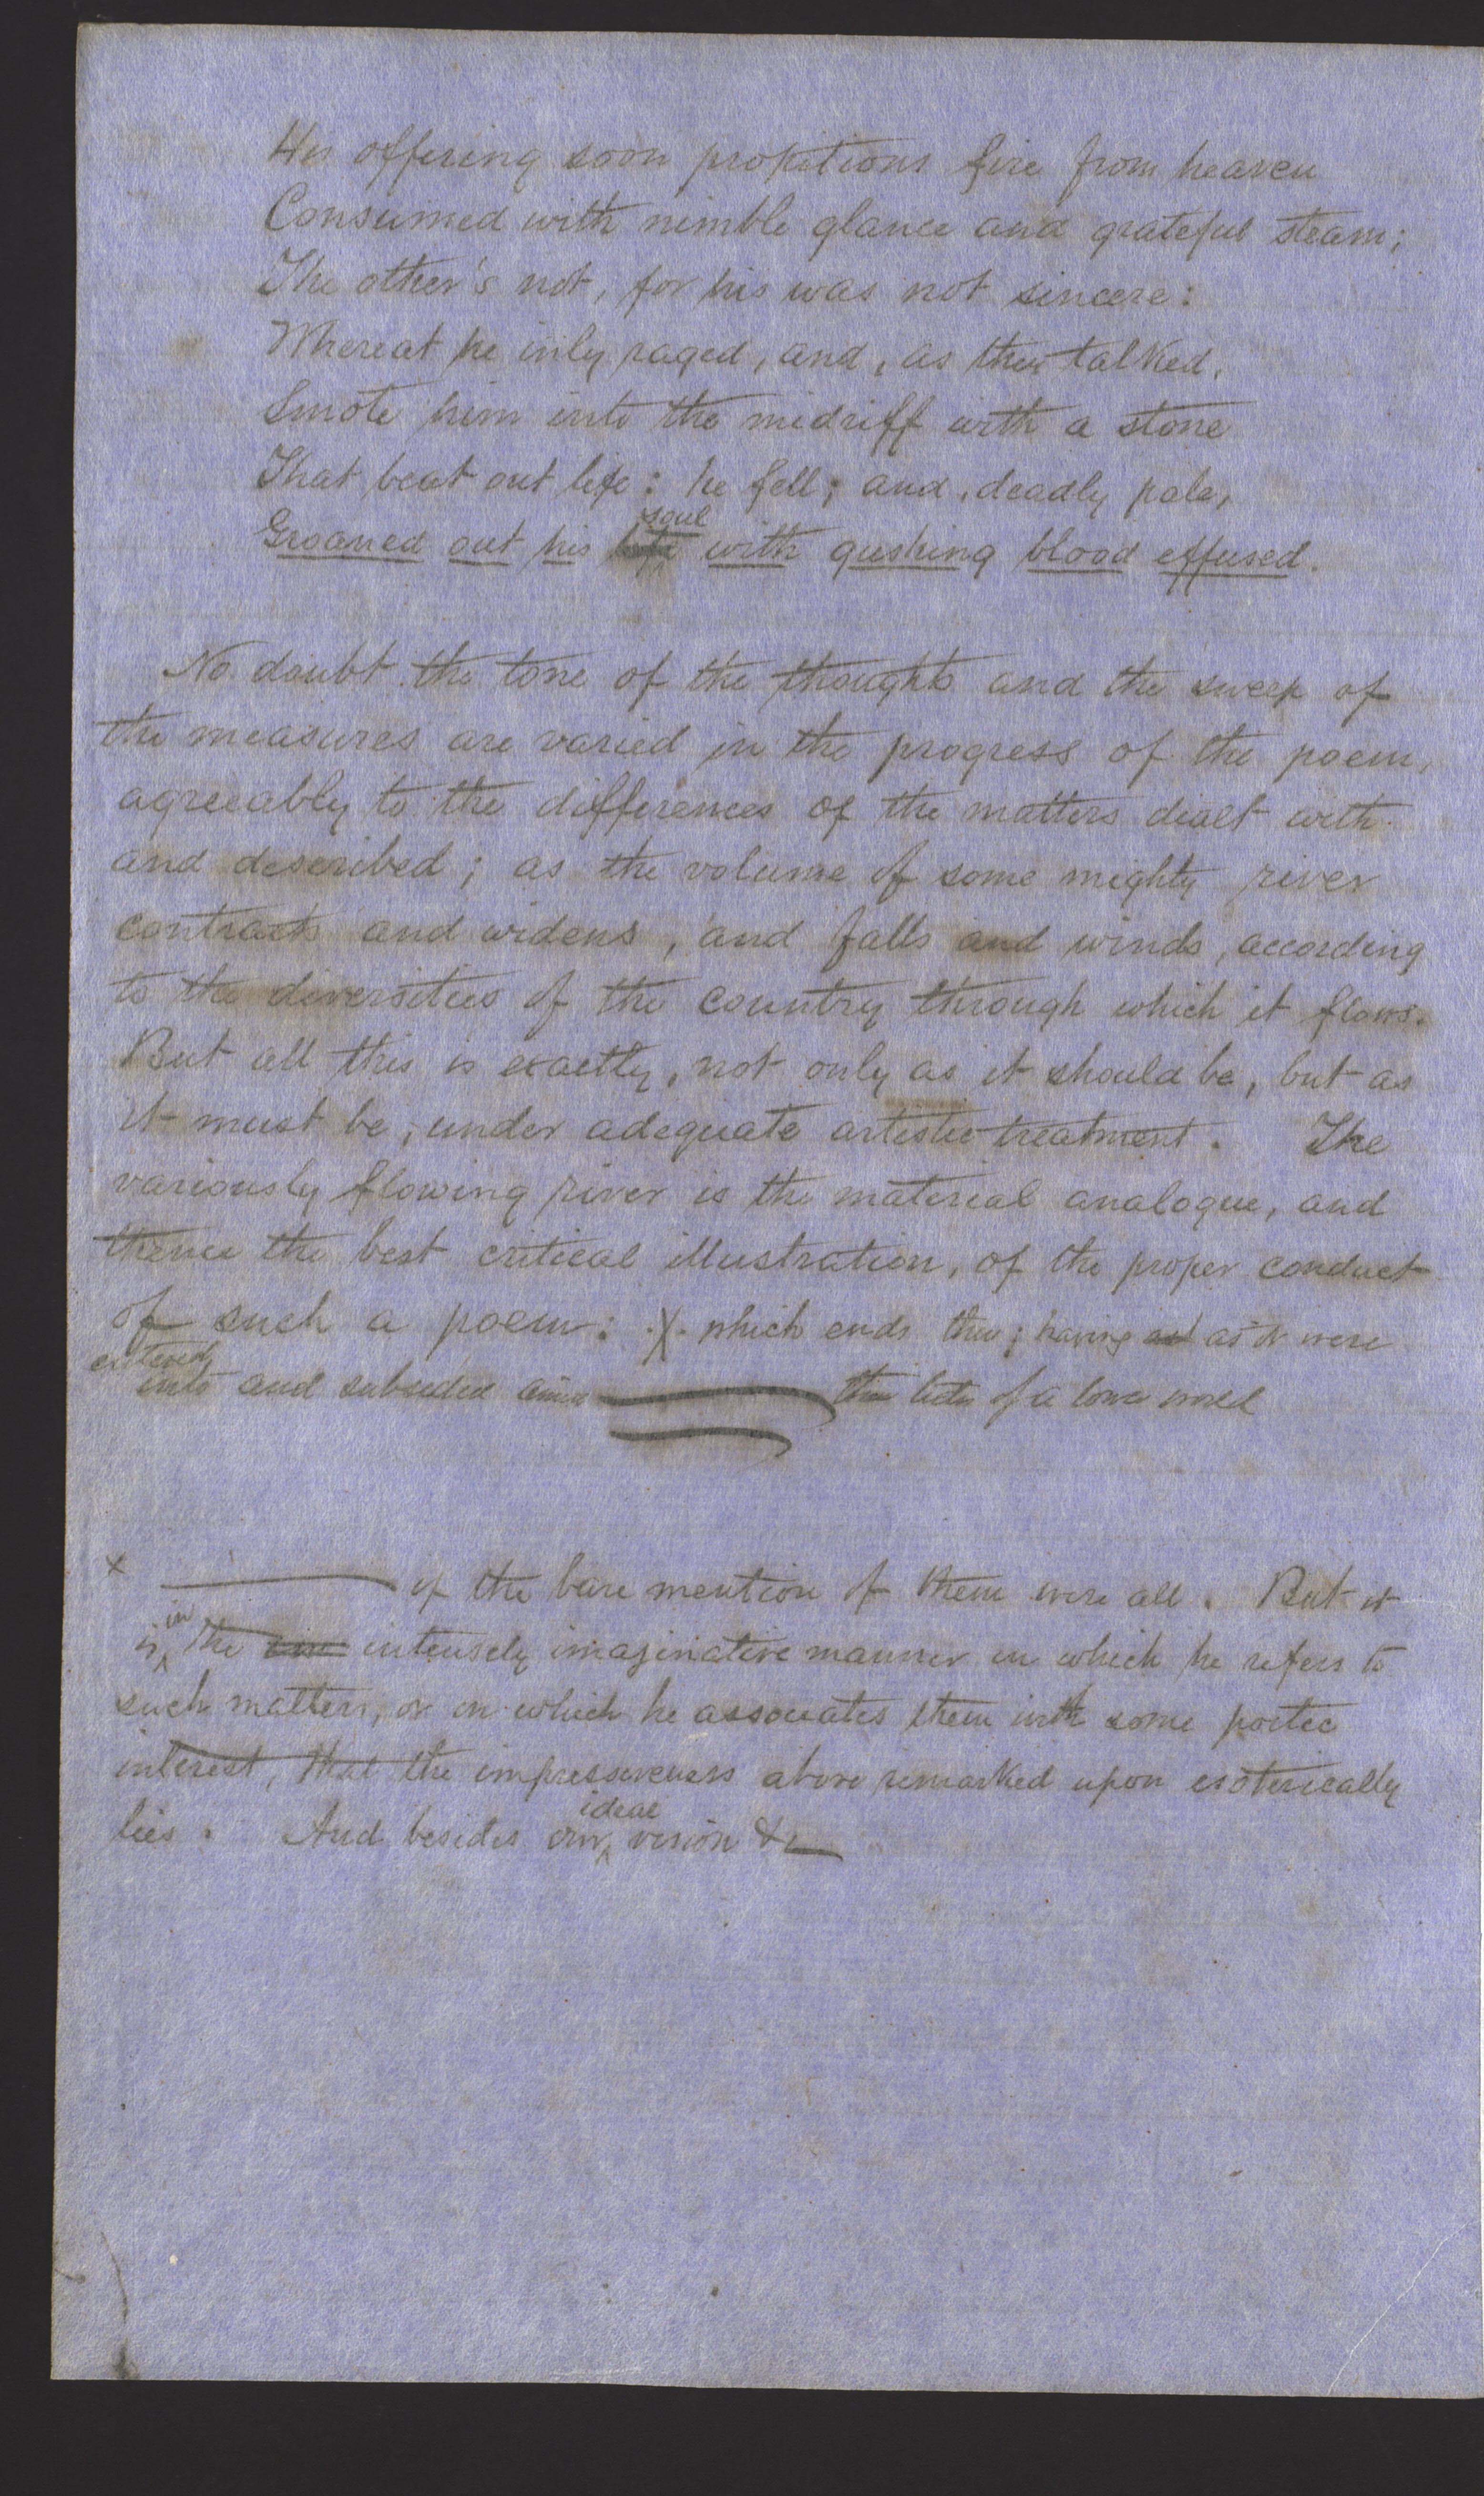 His offering soon propitious fire from heaven
Consumed with nimble glance and grateful steam;
The other's not, for his was not sincere:
Whereat he inly raged, and, as they talked,
Smote him into the midriff with a stone
That beat out life: he fell; and, deadly pale,
soul
Groaned out his life with gushing blood effused.
No doubt the tone of the thoughts and the sweep of
the measures are varied in the progress of the poem,
agreeably to the differences of the matters dealt with
and described; as the volume of some mighty river
contracts and widens, and falls and winds, according
to the diversities of the country through which it flows.
But all this is exactly, not only as it should be, but as
it must be, under adequate artistic treatment. The
variously flowing river is the material analogue, and
thence the best critical illustration, of the proper conduct
of such a poem: X which ends thus; having as it were
entered
into and subsided the of a world
x of the bare mention of them were all. But it
in
is the intensely imaginative manner in which he refers to
such matters, or in which he associates them with some poetic
interest, that the impressiveness above remarked upon esoterically
ideal
lies. And besides our vision &c